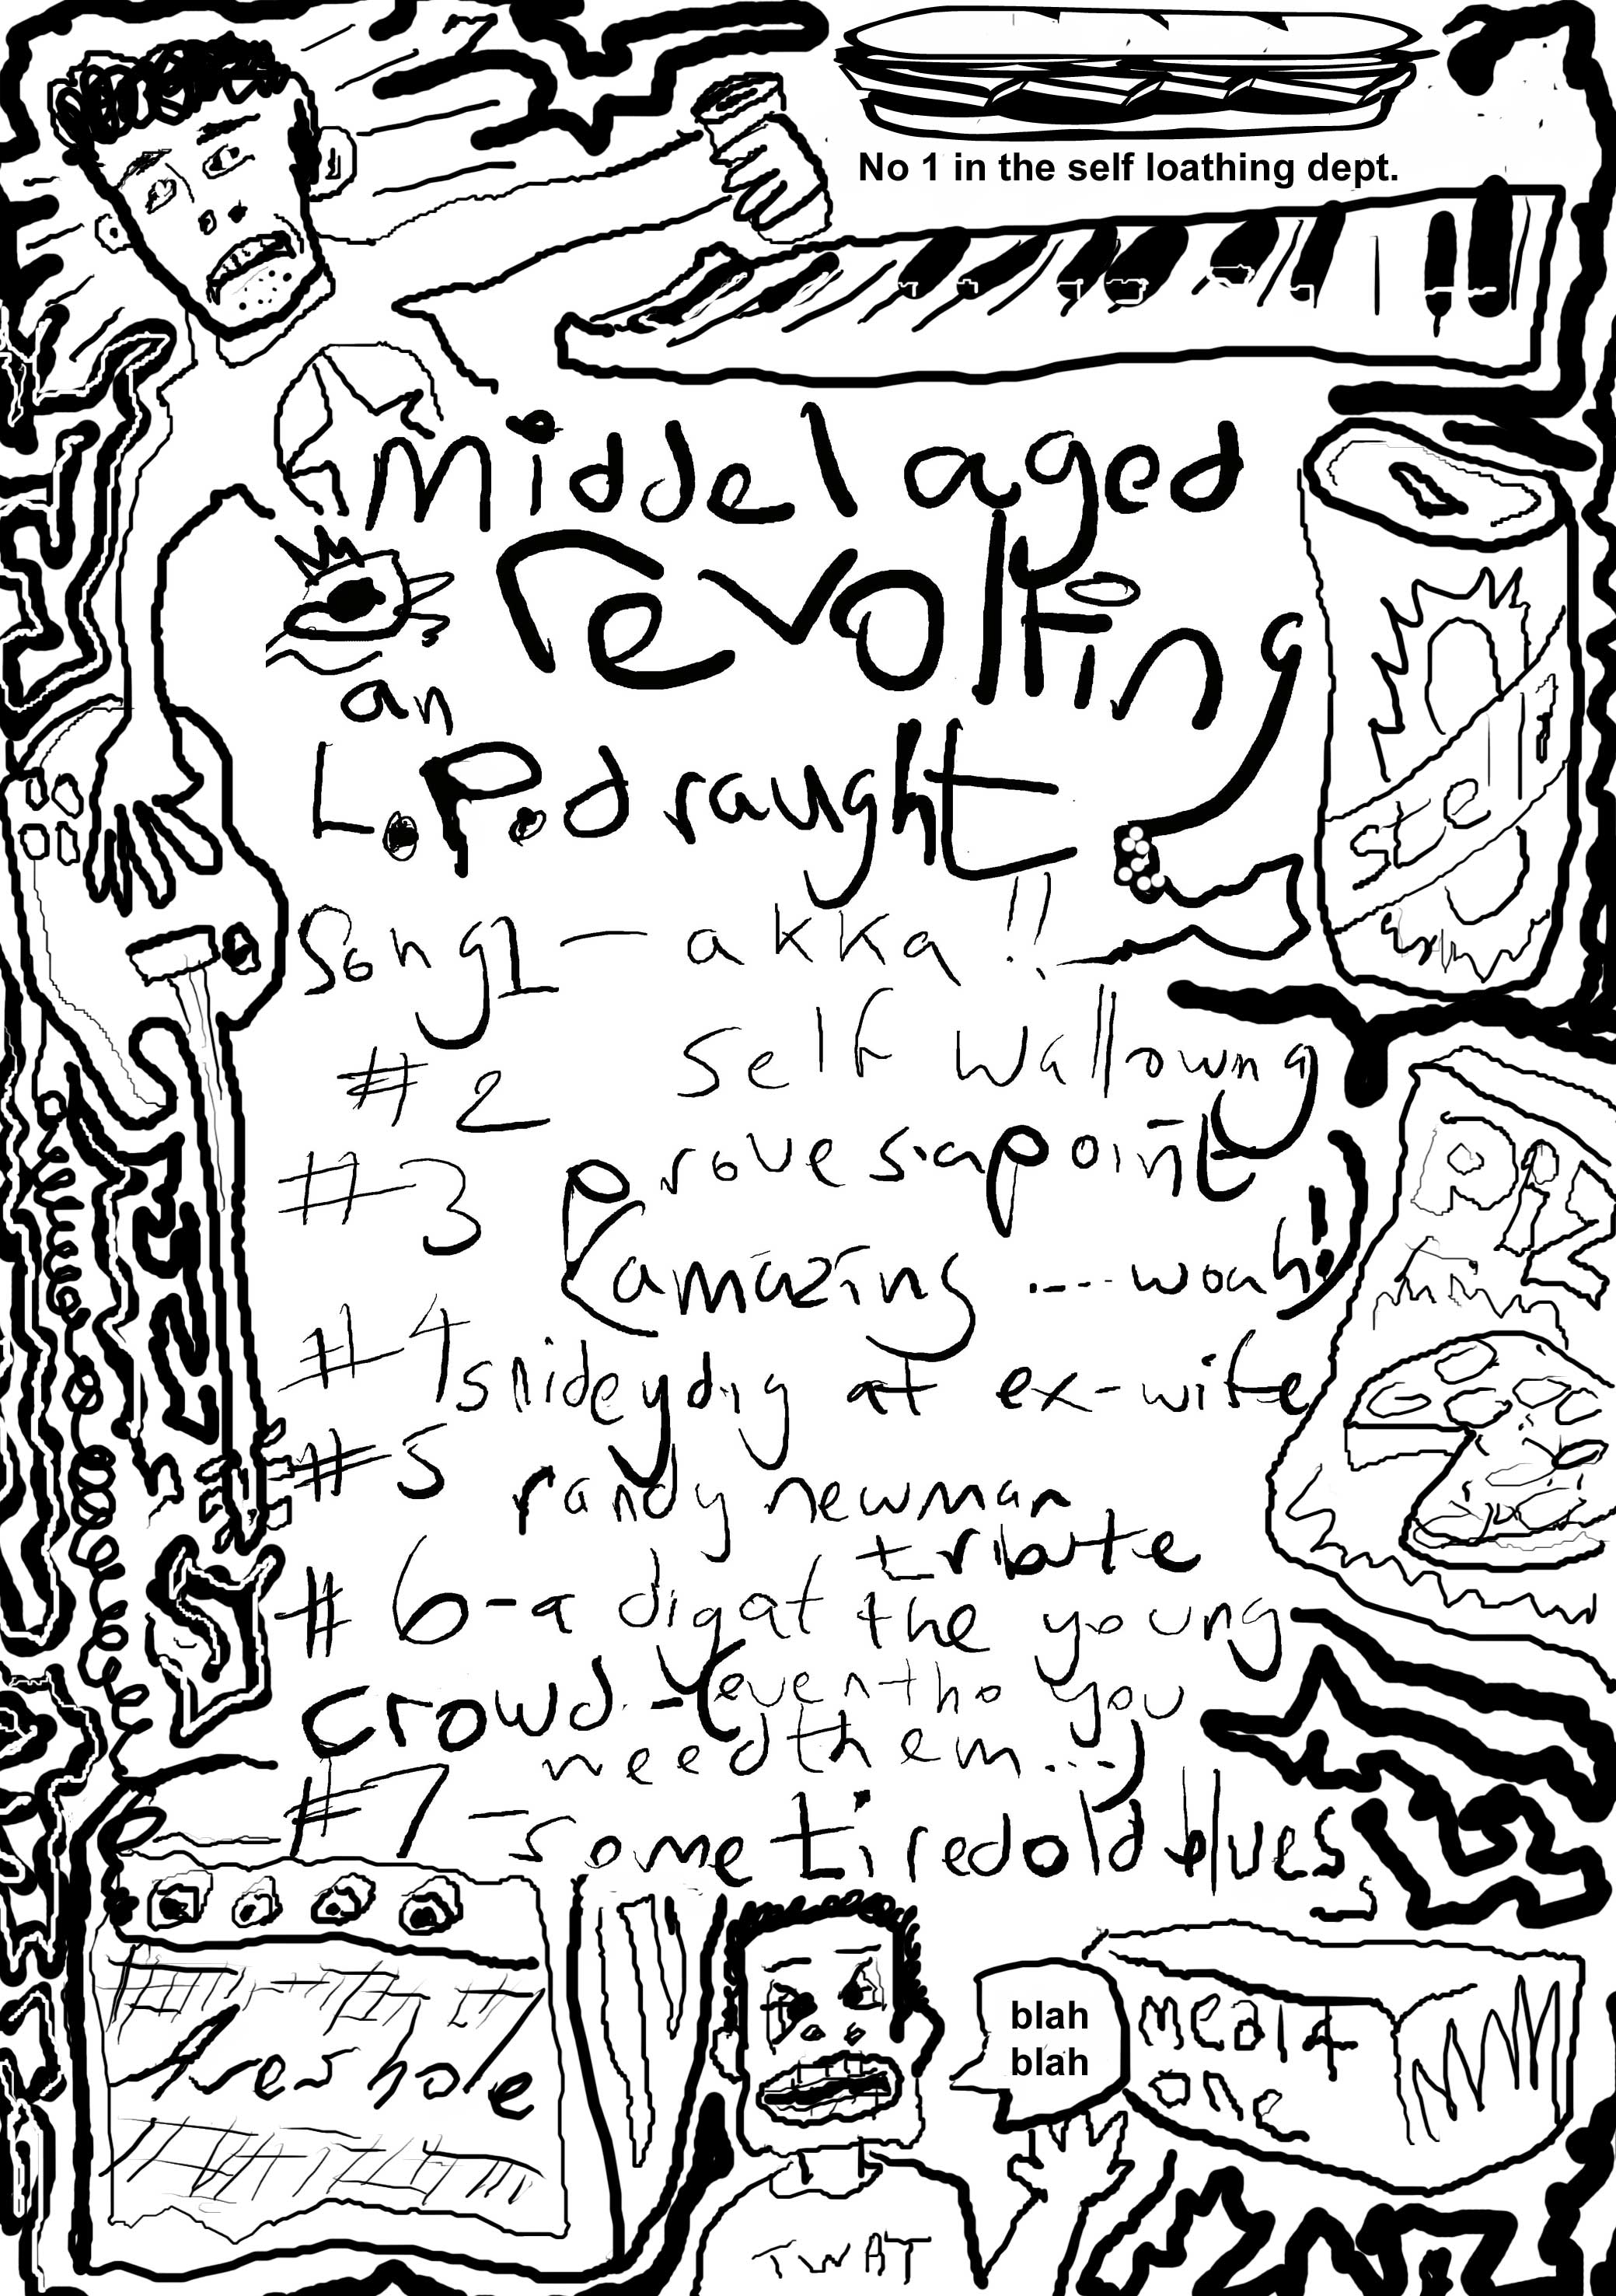 No 1 in the self loathing dept.
middel aged
revolting
an
L.P. draught
Stella
Song 1 - akka!!
#2 self wallowng
#3 proves a point
(amazing ....woah!)
Piz
#4 snidey dig at ex-wife
#5 randy newman
tribute
#6 - a dig at the young
crowd. - (even tho you
need them...)
#7 - some tired old blues
areshole
blah
blah
meal 4
one
TWAT